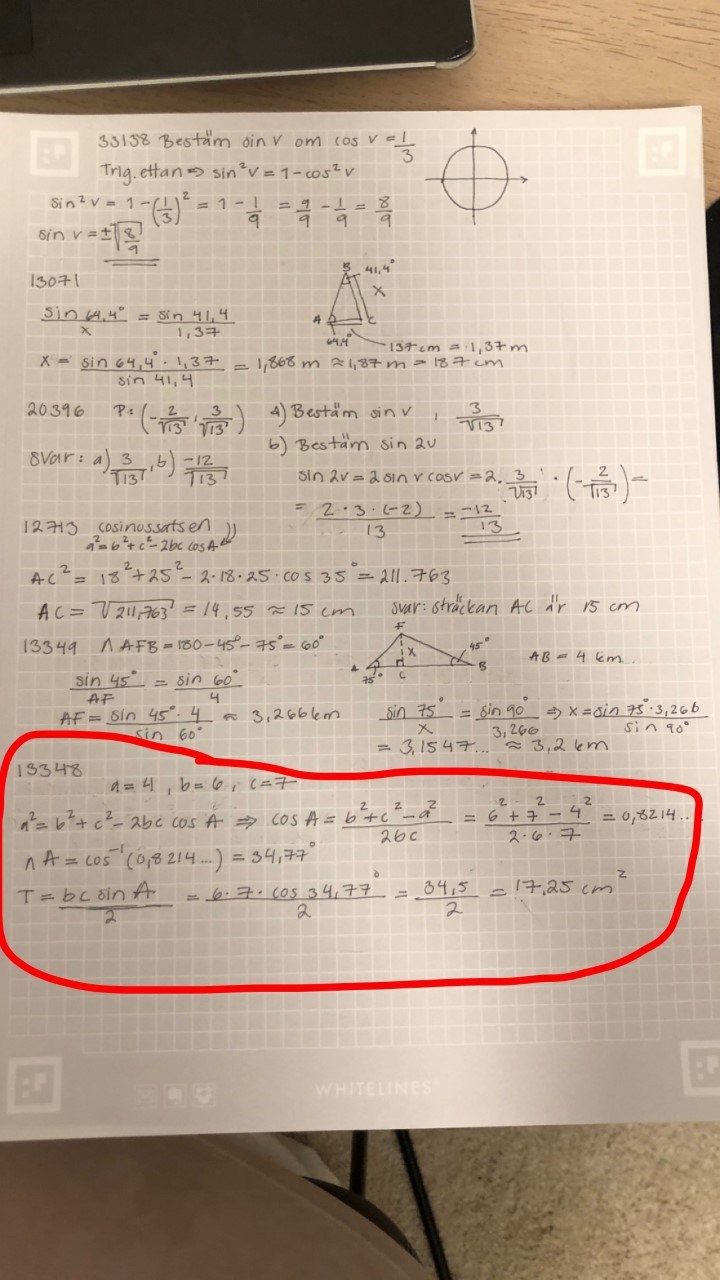 33138 Bestäm sin v om cos v = 1/3
Trig. ettan ⇒ sin²v = 1 - cos²v
sin²v = 1 - (1/3)² = 1 - 1/9 = 9/9 - 1/9 = 8/9
sin v = ±√(8/9)
13071
B 41,4°
x
A C
64,4° 137 cm = 1,37 m
sin 64,4°/x = sin 41,4/1,37
x = sin 64,4° · 1,37/sin 41,4 = 1,868 m ≈ 1,87 m = 187 cm
20396 P: (-2/√13, 3/√13) a) Bestäm sin v, 3/√13
b) Bestäm sin 2v
svar: a) 3/√13, b) -12/√13
sin 2v = 2 sin v cos v = 2 · 3/√13 · (-2/√13) =
= 2·3·(-2)/13 = -12/13
12713 cosinussatsen
a² = b² + c² - 2bc cos A
AC² = 18² + 25² - 2·18·25·cos 35° = 211.763
AC = √211,763 = 14,55 ≈ 15 cm svar: sträckan AC är 15 cm
13349 ∧ AFB = 180 - 45° - 75° = 60°
F
x 45°
A C B
75°
AB = 4 km
sin 45°/AF = sin 60°/4
AF = sin 45° · 4/sin 60° ≈ 3,266 km
sin 75°/x = sin 90°/3,266 ⇒ x = sin 75° · 3,266/sin 90°
= 3,1547... ≈ 3,2 km
13348
a = 4, b = 6, c = 7
a² = b² + c² - 2bc cos A ⇒ cos A = b² + c² - a²/2bc = 6² + 7² - 4²/2·6·7 = 0,8214..
∧ A = cos⁻¹(0,8214...) = 34,77°
T = bc sin A/2 = 6·7·cos 34,77°/2 = 34,5/2 = 17,25 cm²
WHITELINES